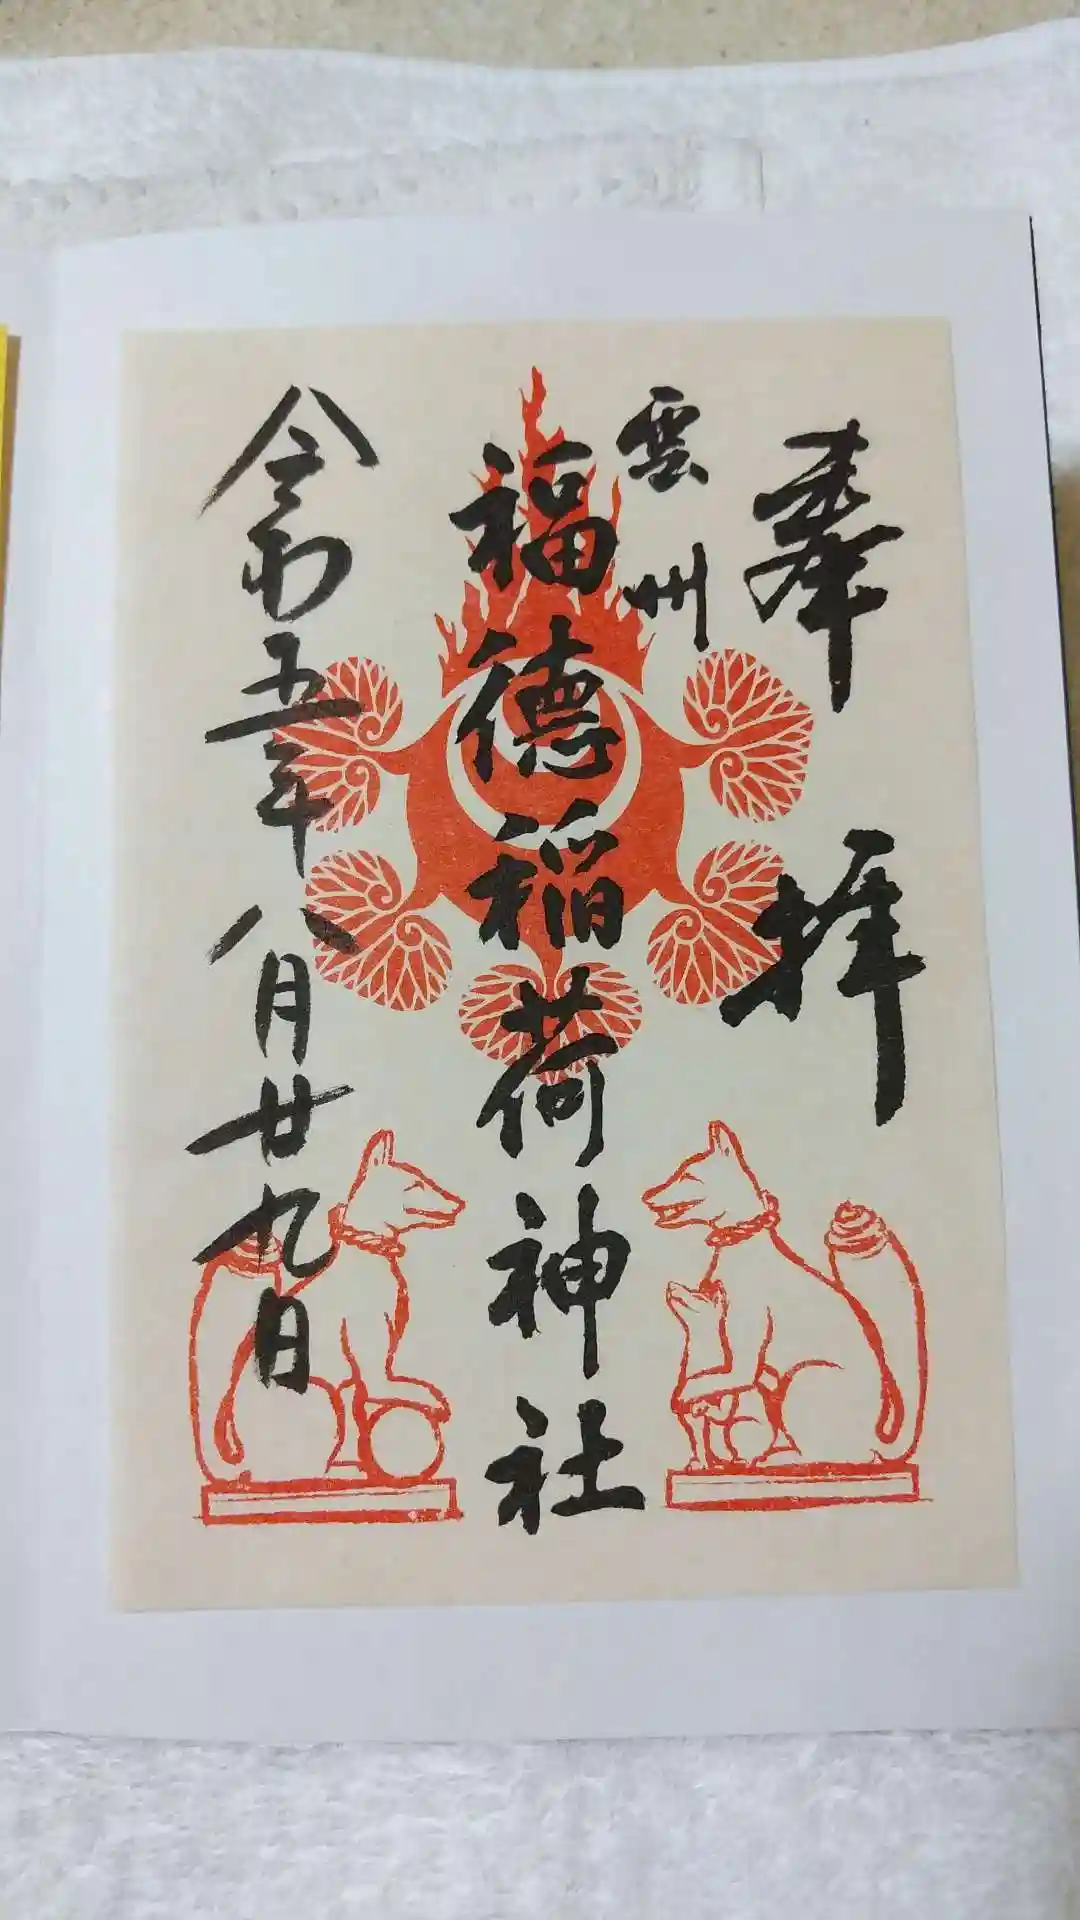 奉拝
雲州
福德稲荷神社
令和五年八月廿九日